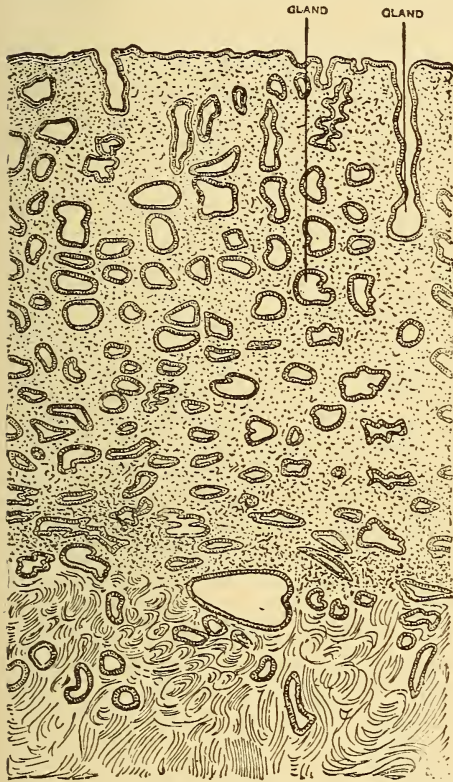 GLAND
GLAND